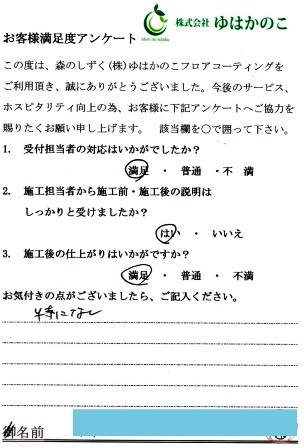 株式会社 ゆはかのこ
お客様満足度アンケート
この度は、森のしずく(株)ゆはかのこフロアコーティングを
ご利用頂き、誠にありがとうございました。今後のサービス、
ホスピタリティ向上の為、お客様に下記アンケートへご協力を
賜りたくお願い申し上げます。 該当欄を○で囲って下さい。
1. 受付担当者の対応はいかがでしたか?
満足 ・ 普通 ・ 不満
2. 施工担当者から施工前・施工後の説明は
しっかりと受けましたか?
はい ・ いいえ
3. 施工後の仕上がりはいかがですか?
満足 ・ 普通 ・ 不満
お気付きの点がございましたら、ご記入ください。
特になし
御名前